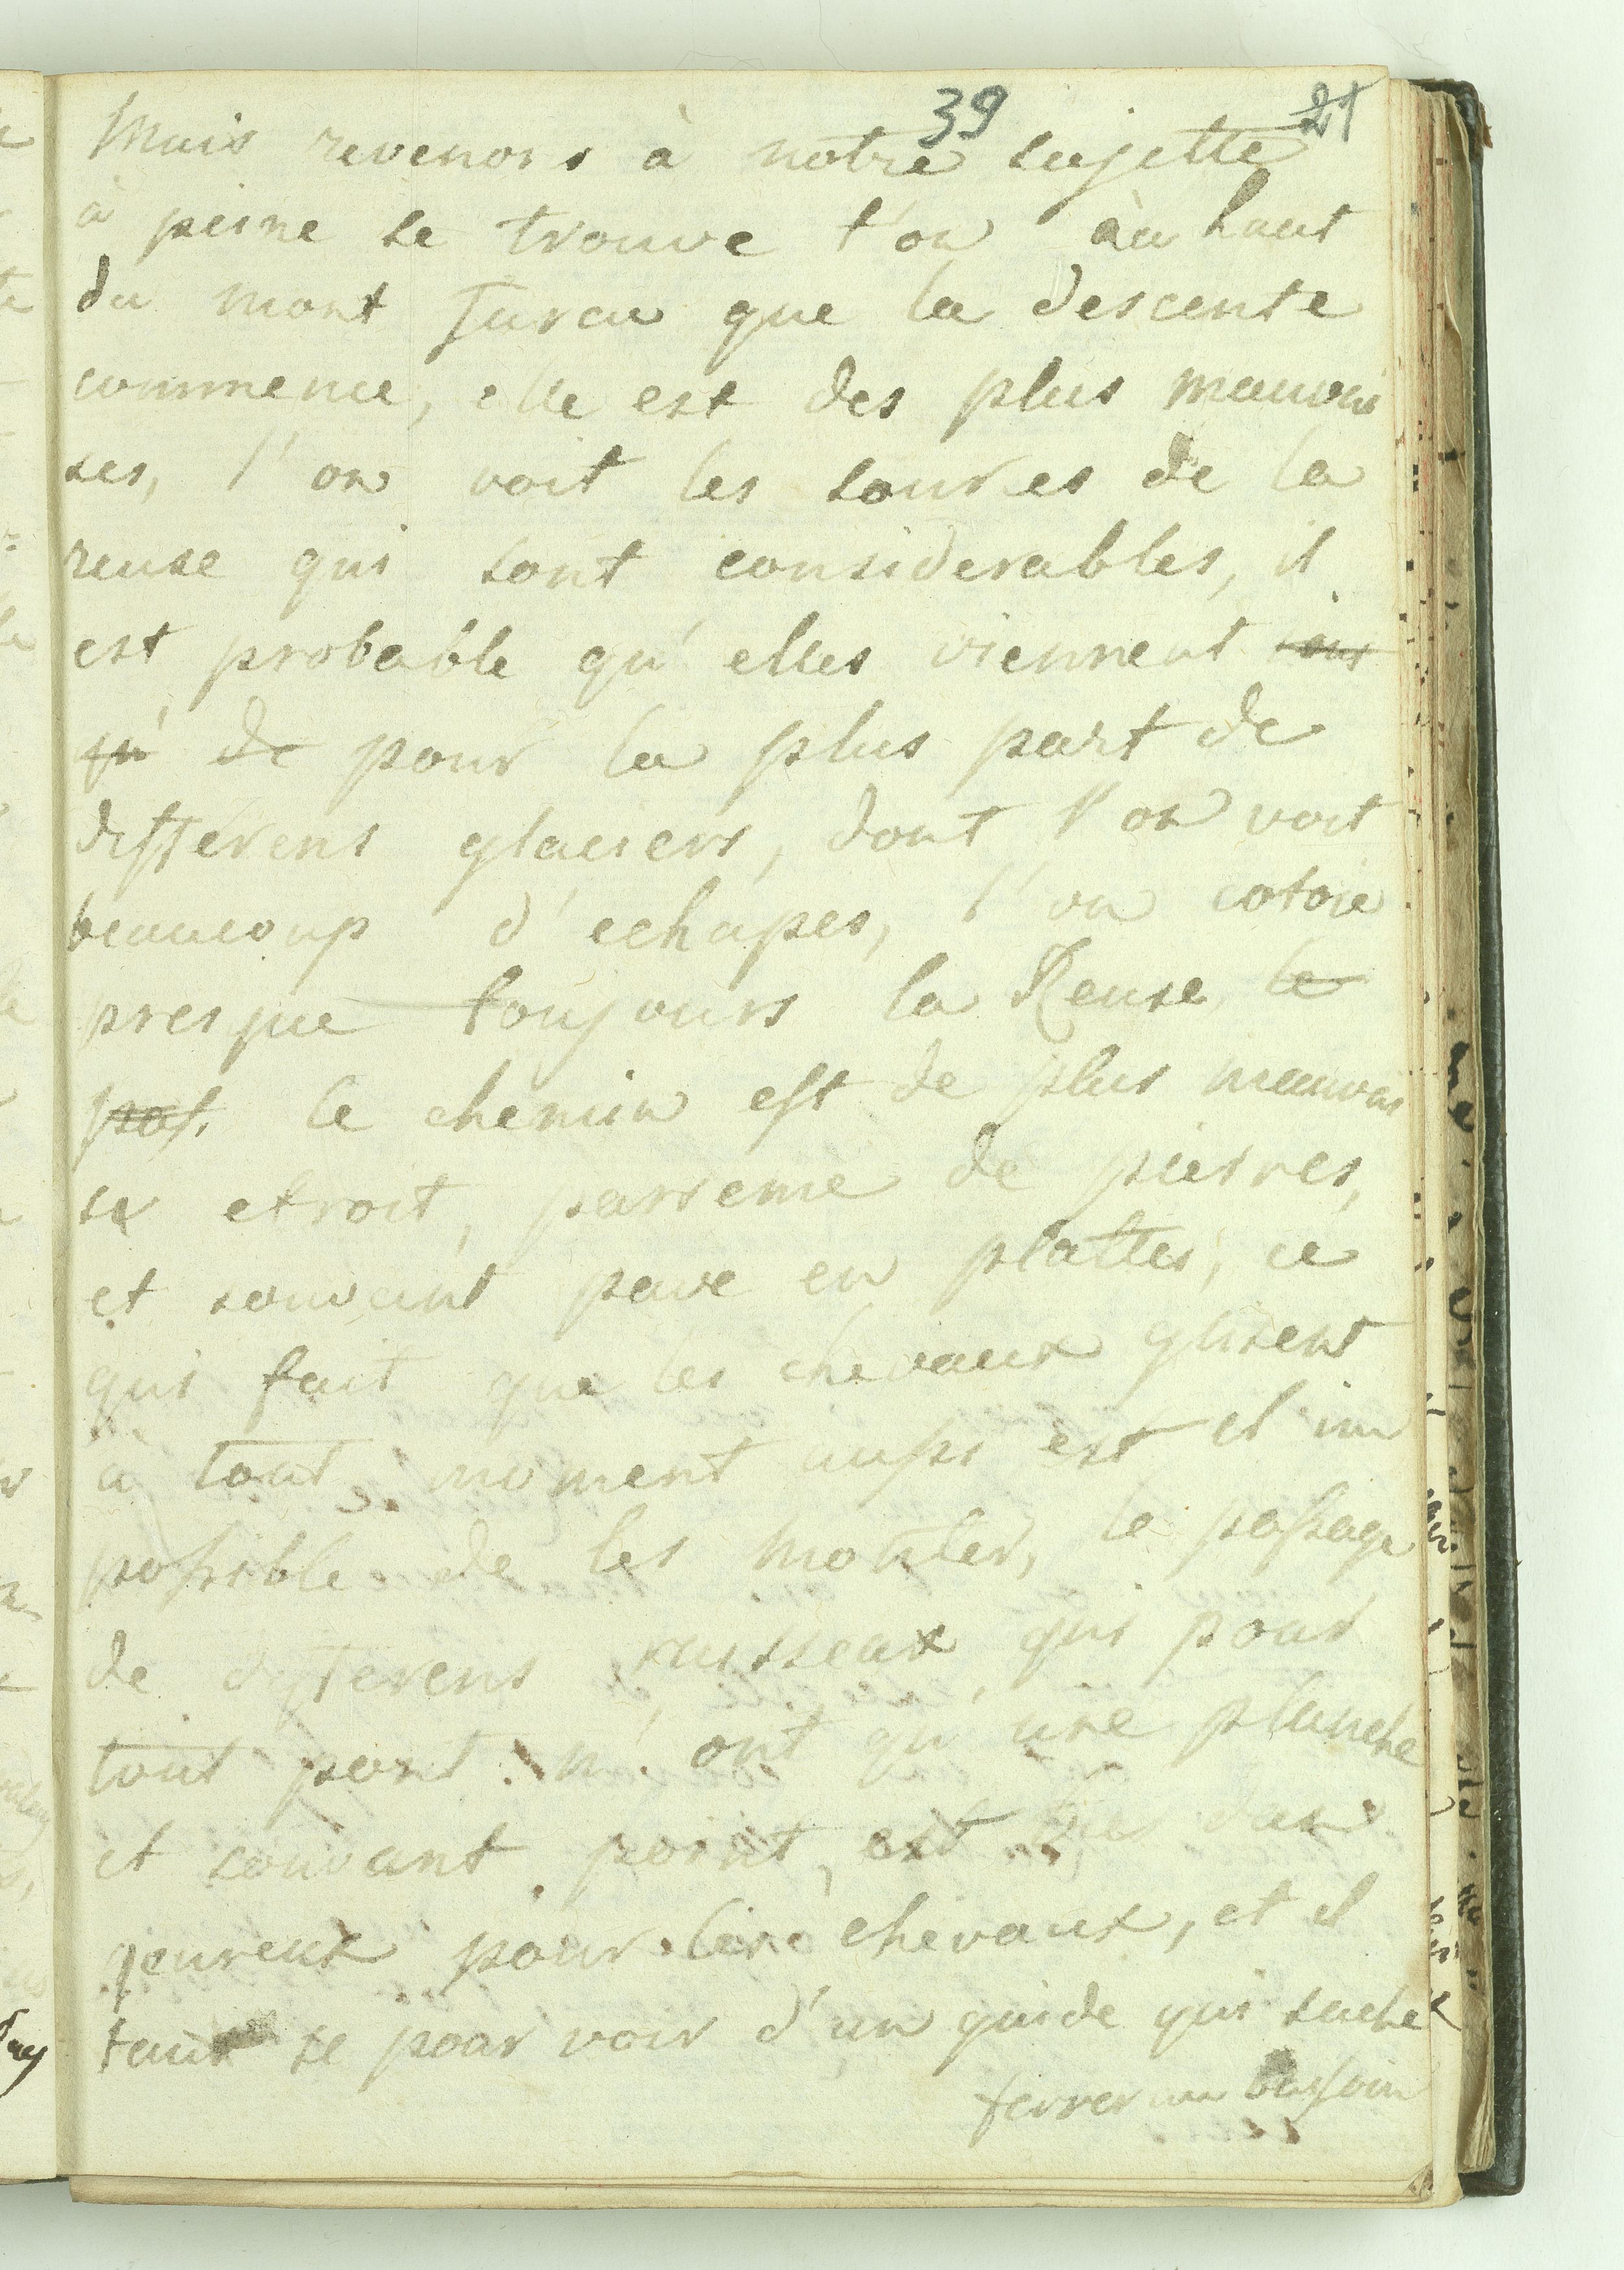 39 21
Mais revenons à notre sujette
à peine se trouve t'on au haut
du mont furca que la descente
commence, elle est des plus mauvai
ses, l'on voit les sources de la
reuse qui sont considerables, il
est probable qu'elles viennent
qu' de pour la plus part de
differens glaciers, dont l'on voit
beaucoup d'echapes, l'on cotoie
presque toujours la Reuse le
pas. le chemin est de plus mauvais
et etroit, parsemé de pierres,
et souvent pavé en plattes, ce
qui fait que les chevaux glisent
a tout moment aussi est il im
possible de les monter, le passage
de differens ruisseaux qui pour
tout pont n'ont qu'une planche
et souvant point, est dan
gereux pour les chevaux, et il
faut se pourvoir d'un guide qui sache
ferrer au besoin